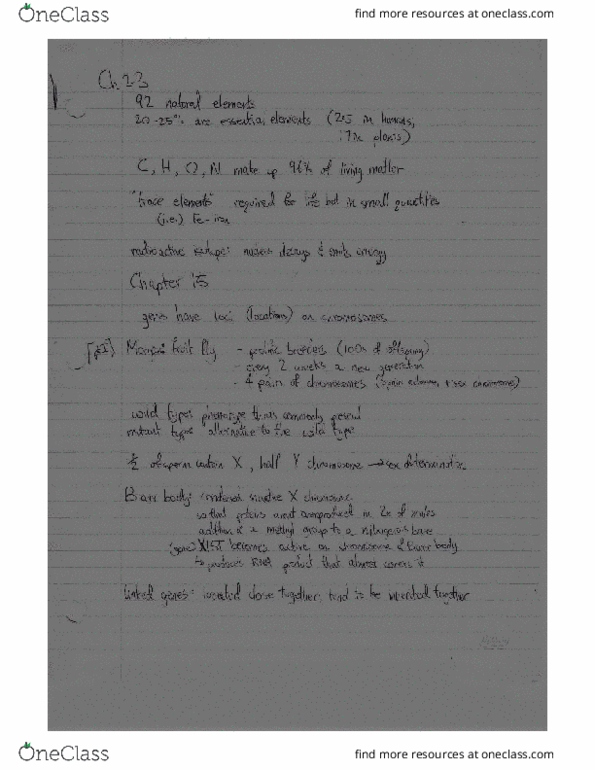 OneClass
find more resources at oneclass.com
Ch 2.3
92 natural elements
20-25% are essential elements (25 in humans,
17 in plants)
C, H, O, N make up 96% of living matter
"trace elements" required for life but in small quantities
(i.e.) Fe - iron
radioactive isotope: nucleus decays & emits energy
Chapter 15
genes have loci (locations) on chromosomes
Morgan's fruit fly - prolific breeders (100s of offspring)
- every 2 weeks a new generation
- 4 pairs of chromosomes
wild type: phenotype
mutant type: alternative to the wild type
½ of sperm contain X, half Y chromosome → sex determination
Barr body: condensed inactive X chromosome
so that proteins
addition of a methyl group to a nitrogenous base
(gene) XIST becomes active on chromosome of Barr body
to produce RNA product that almost covers it
linked genes: located close together; tend to be inherited together
OneClass
find more resources at oneclass.com